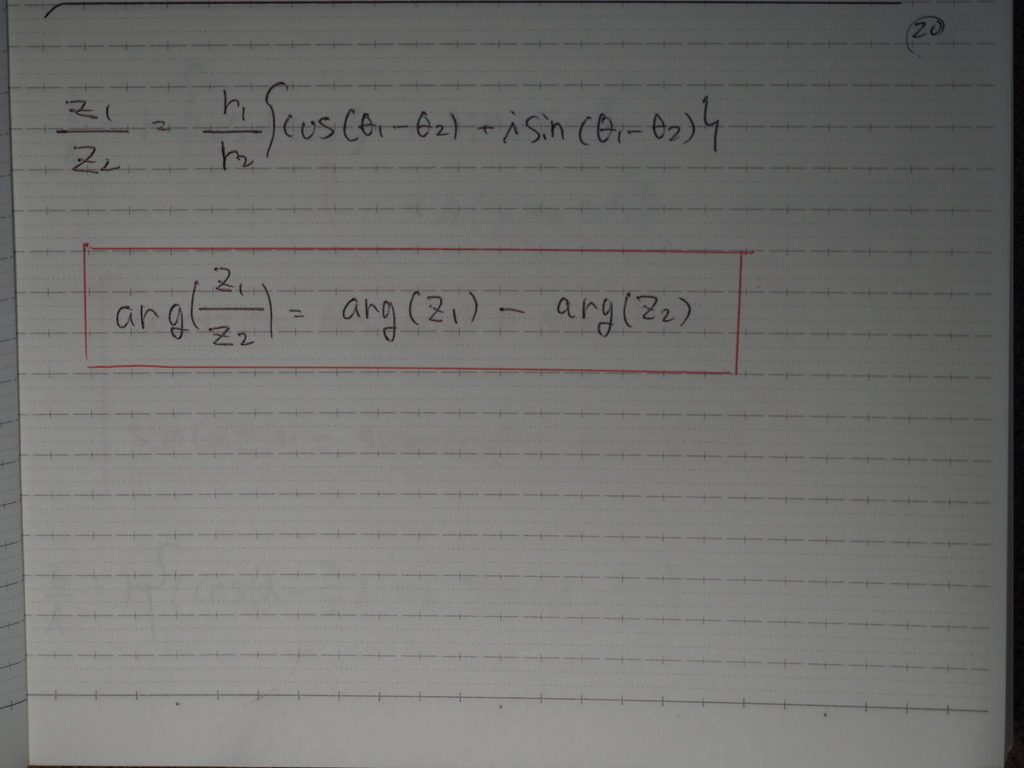 (20)
z1/z2 = r1/r2 {cos(θ1-θ2) + i sin(θ1-θ2)}
arg(z1/z2) = arg(z1) - arg(z2)